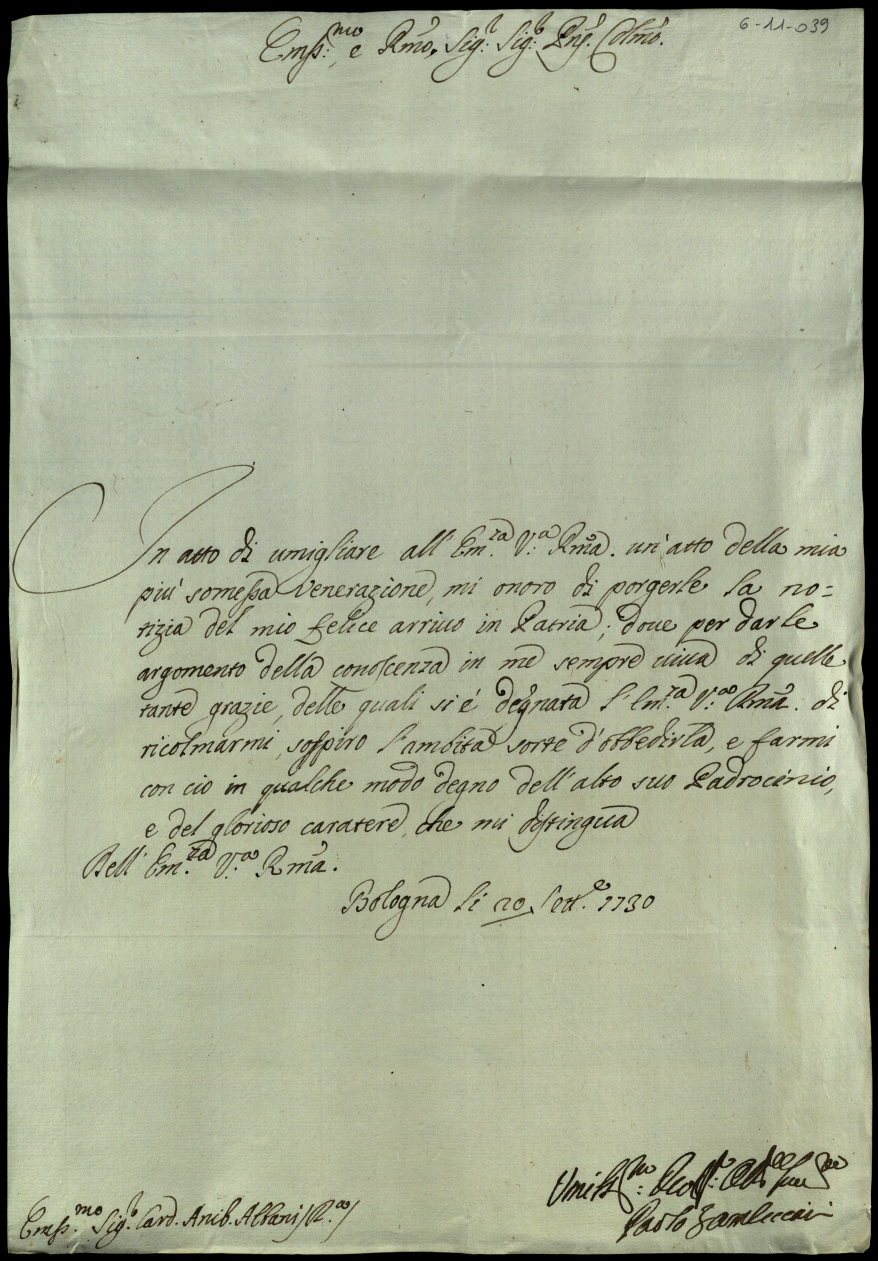 6-11-039
Emss:mo, e Rmo, Sig:r Sig:r Pnē Colmo.
In atto di umigliare all' Em:za V:a Rma. un' atto della mia
piu' somessa venerazione, mi onoro di porgerle la no=
tizia del mio felice arrivo in Patria; dove per darle
argomento della conoscenza in me sempre viva di quelle
tante grazie, delle quali si é degnata l'Em:za V:a Rma. di
ricolmarmi, sospiro l'ambita sorte d'obbedirla, e farmi
con cio in qualche modo degno dell' alto suo Padrocinio,
e del glorioso caratere, che mi distingua
Dell' Em:za V:a Rma.
Bologna li 20 Sett.e 1730
Umilss:mo
Paolo
Emss:mo Sig:r Card. Anib. Albani /R:a/